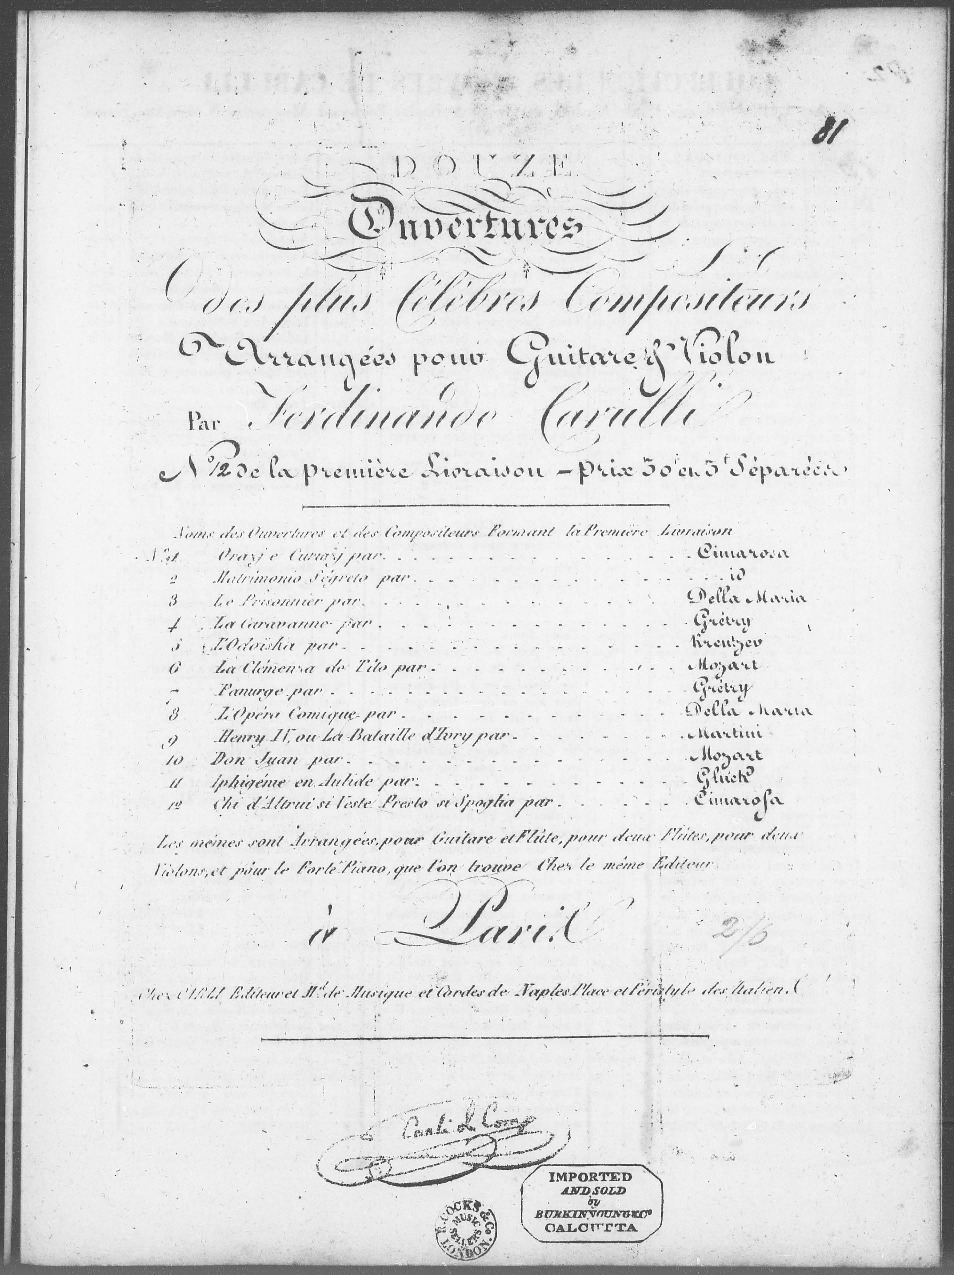 81
DOUZE
Ouvertures
des plus Célèbres Compositeurs
Arrangées pour Guitare & Violon
Par Ferdinando Carulli
No. 12 de la première Livraison - prix 30f en 3t Séparées
Noms des Ouvertures et des Compositeurs Formant la Première Livraison
No. 1 Orazj e Curiazj par Cimarosa
2 Matrimonio Ségreto par id
3 Le Prisonnier par Della Maria
4 La Caravanne par Grétry
5 L'Odoiska par Kreutzer
6 La Clémenza de Tito par Mozart
7 Panurge par Grétry
8 L'Opéra Comique par Della Maria
9 Henry IV, ou La Bataille d'Ivry par Martini
10 Don Juan par Mozart
11 Iphigénie en Aulide par Gluck
12 Chi d'Altrui si Veste Presto si Spoglia par Cimarosa
Les mêmes sont Arrangées, pour Guitare et Flûte, pour deux Flûtes, pour deux
Violons, et pour le Forté Piano, que l'on trouve Chez le même Editeur
à Paris
2/6
Chez CARLI Editeur et Md. de Musique et Cordes de Naples Place et Péristyle des Italiens
Carli & Comp
IMPORTED
AND SOLD
by
BURKINYOUNG & Co
CALCUTTA
R. COCKS & Co. LONDON.
MUSIC SELLERS